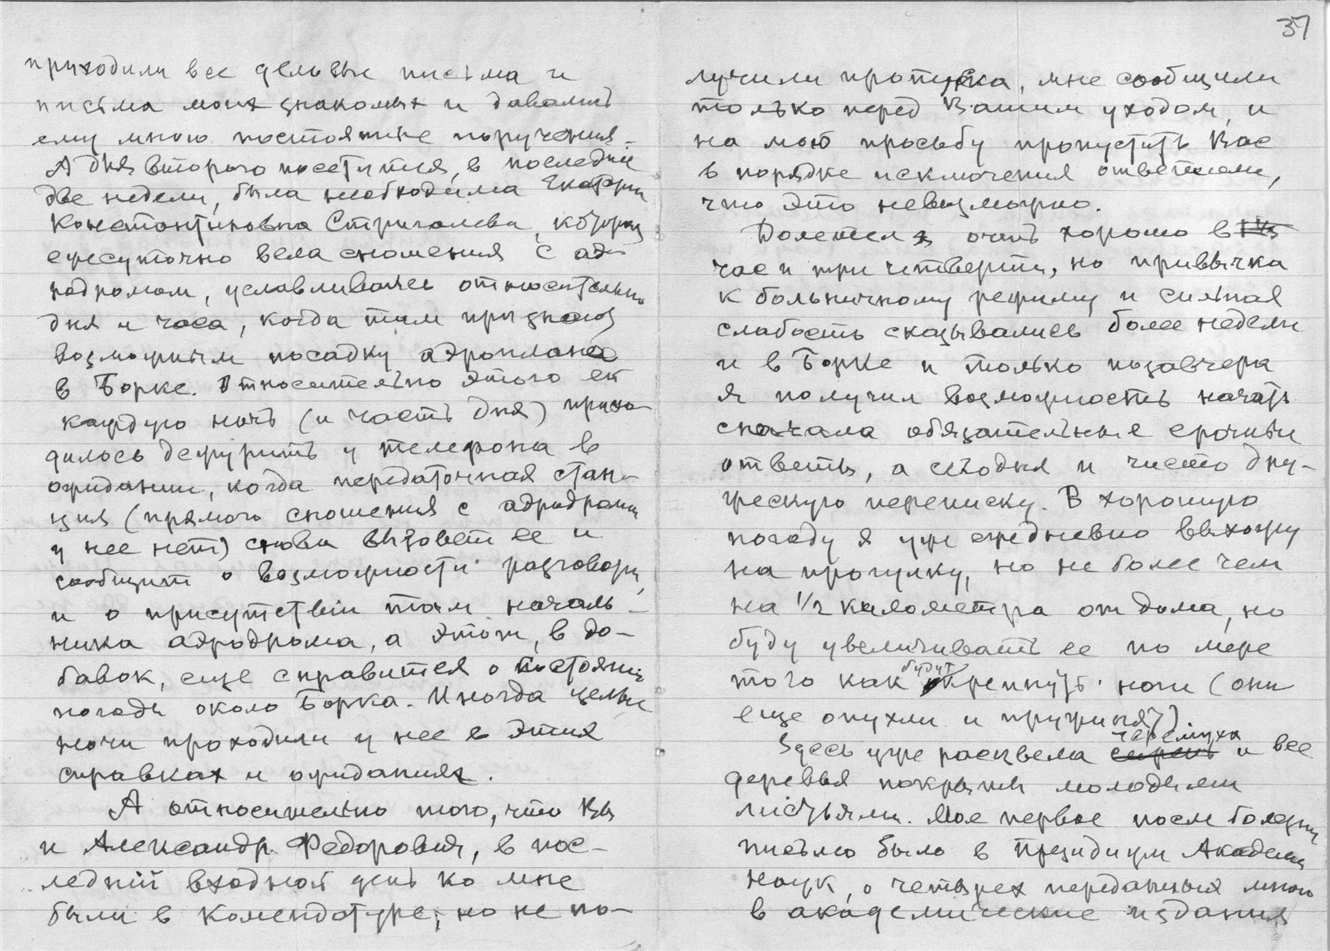 37
приходили все деловые письма и
письма моих знакомых и давались
ему мною постоянные поручения.
А для второго посетителя, в последние
две недели, была необходима Екатерина
Константиновна Стригалева, которая
ежесуточно вела сношения с аэ-
родромом, уславливаясь относительно
дня и часа, когда там признают
возможным посадку аэроплана
в Борке. Относительно этого ей
каждую ночь (и часть дня) прихо-
дилось дежурить у телефона в
ожидании, когда передаточная стан-
ция (прямого сношения с аэродромом
у нее нет) снова вызовет ее и
сообщит о возможности разговора,
и о присутствии там началь-
ника аэродрома, а этот, в до-
бавок, еще справится о состоянии
погоды около Борка. Иногда целые
ночи проходили у нее в этих
справках и ожиданиях.
А относительно того, что Вы
и Александр Федорович, в пос-
ледний входной день ко мне
были в Комендатуре, но не по-
лучили пропуска, мне сообщили
только перед Вашим уходом, и
на мою просьбу пропустить Вас
в порядке исключения ответили,
что это невозможно.
Долетел я очень хорошо в
час и три четверти, но привычка
к больничному режиму и сильная
слабость сказывались более недели
и в Борке и только позавчера
я получил возможность начать
сначала обязательные срочные
ответы, а сегодня и чисто дру-
жескую переписку. В хорошую
погоду я уже ежедневно выхожу
на прогулку, но не более чем
на 1/2 километра от дома, но
буду увеличивать ее по мере
того как будут крепнуть ноги (они
еще опухли и
Здесь уже расцвела сирень черемуха и все
деревья покрыты молодыми
листьями. Мое первое после болезни
письмо было в Президиум Академии
Наук, о четырех переданных мною
в академические издания